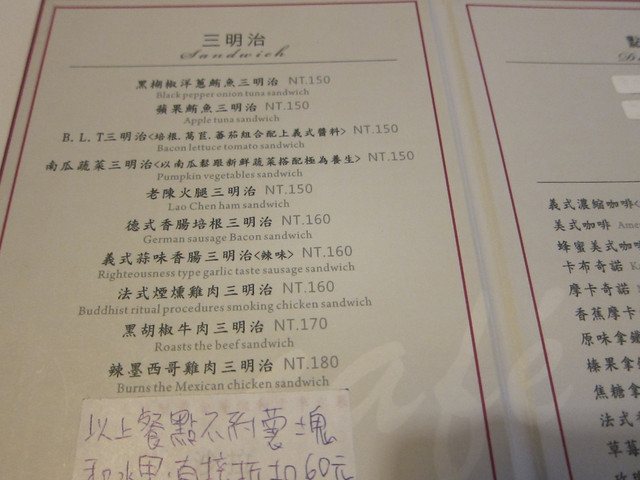 三明治
Sandwich
黑糊椒洋蔥鮪魚三明治 NT.150
Black pepper onion tuna sandwich
蘋果鮪魚三明治 NT.150
Apple tuna sandwich
B.L.T三明治<培根.萵苣.蕃茄組合配上義式醬料> NT.150
Bacon lettuce tomato sandwich
南瓜蔬菜三明治<以南瓜鬆跟新鮮蔬菜搭配極為養生> NT.150
Pumpkin vegetables sandwich
老陳火腿三明治 NT.150
Lao Chen ham sandwich
德式香腸培根三明治 NT.160
German sausage Bacon sandwich
義式蒜味香腸三明治<辣味> NT.160
Righteousness type garlic taste sausage sandwich
法式煙燻雞肉三明治 NT.160
Buddhist ritual procedures smoking chicken sandwich
黑胡椒牛肉三明治 NT.170
Roasts the beef sandwich
辣墨西哥雞肉三明治 NT.180
Burns the Mexican chicken sandwich
以上餐點不附薯塊
和水果.直接折扣60元
義式濃縮咖啡<
美式咖啡 Ame
蜂蜜美式咖啡
卡布奇諾
摩卡奇諾
香蕉摩卡
原味拿鐵
榛果拿
焦糖拿
法式
草莓